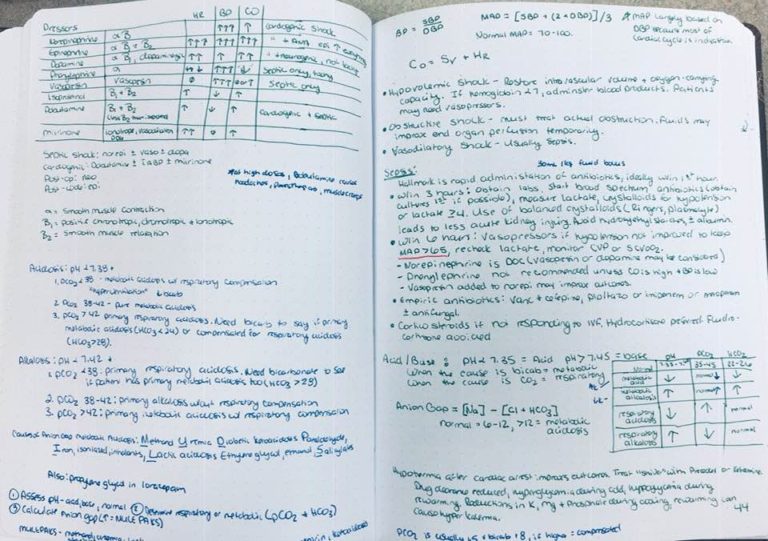 Pressors HR BP CO
Norepinephrine α β ↑↑↑ ↑ cardiogenic shock
Epinephrine α B1 + B2 ↑↑↑ ↑↑↑ ↑↑↑
Dopamine α B1, dopaminergic ↑↑ ↑ ↑↑ + neurogenic, not
Phenylephrine α ↑↑↑ Septic only,
Vasopressin Vasopressin ∅ ↑↑↑ Septic only
Isoproterenol B1 + B2 ↑ ↓ ↑
Dobutamine B1 + B2 ↑ ↓ ↑ Cardiogenic + septic
Milrinone Ionotrope, vasodilation ↑↑ ∅ ↑
Septic Shock: norepi ± vaso ± dopa
cardiogenic: Dobutamine ± IABP ± milrinone
Post-op: neo
Post-code: epi
*at high doses, Dobutamine causes
headaches, paresthesias, muscle cramps
α = Smooth muscle contraction
B1 = positive chronotropic, dromotropic + ionotropic
B2 = Smooth muscle relaxation
Acidosis: pH < 7.38 +
1. pCO2 <38 - metabolic acidosis w/ respiratory compensation
"hyperventilation" ↓ bicarb
2. PCO2 38-42 - pure metabolic acidosis
3. PCO2 >42 primary respiratory acidosis. Need bicarb to say if primary
metabolic acidosis (HCO3 <24) or compensated for respiratory acidosis
(HCO3 >28).
Alkalosis: pH > 7.42 +
1. pCO2 <38: primary respiratory acidosis. Need bicarbonate to see
if patient has primary metabolic acidosis too (HCO3 >29)
2. PCO2 38-42: primary alkalosis w/out respiratory compensation
3. PCO2 >42: primary metabolic acidosis w/ respiratory compensation
Causes of Anion Gap metabolic Acidosis: Methanol Uremia Diabetic ketoacidosis Paraldehyde,
Iron, isoniazid, inhalants, Lactic acidosis Ethylene glycol, ethanol Salicylates
Also: propylene glycol in lorazepam
① Assess pH - acid, base, normal ② Determine respiratory or metabolic (pCO2 + HCO3)
③ Calculate Anion gap (↑ = MULEPAKS)
MULEPAKS - ketoacidosis
BP = SBP
DBP
MAP = [SBP + (2 × DBP)] / 3
* MAP largely based on
DBP because most of
cardiac cycle is in diastole
Normal MAP = 70-100.
CO = SV + HR
• Hypovolemic Shock - Restore intravascular volume + oxygen-carrying
capacity. If hemoglobin < 7, administer blood products. Patients
may need vasopressors.
• Obstructive Shock - must treat actual obstruction. Fluids may
improve end organ perfusion temporarily.
• Vasodilatory Shock - usually sepsis.
Sepsis: 30mL/kg fluid bolus
Hallmark is rapid administration of antibiotics, ideally w/in 1st hour.
• W/in 3 hours: Obtain labs, start broad spectrum antibiotics (obtain
cultures 1st if possible), measure lactate, crystalloids for hypotension
or lactate ≥4. Use of balanced crystalloids (Ringers, plasmalyte)
leads to less acute kidney injury. Avoid hydroxyethyl starch, ± albumin.
• W/in 6 hours: Vasopressors if hypotension not improved to keep
MAP > 65, recheck lactate, monitor CVP or SCVO2.
- Norepinephrine is DOC (vasopressin or dopamine may be considered)
- Phenylephrine not recommended unless CO is high + BP is low
- Vasopressin added to norepi may improve outcomes.
• Empiric antibiotics: vanc + cefepime, pip/tazo or imipenem or meropenem
± antifungal.
• Corticosteroids if not responding to IVF, Hydrocortisone preferred. Fludro-
cortisone
Acid/Base: pH < 7.35 = Acid pH > 7.45 = base
When the cause is bicarb = metabolic
When the cause is CO2 = respiratory
pH PCO2 HCO3
Normal 7.35-7.45 35-45 22-26
metabolic acidosis ↓ normal ↓ ↓
metabolic alkalosis ↑ normal ↑ ↑
respiratory acidosis ↓ ↑ normal
respiratory alkalosis ↑ ↓ normal
Anion Gap = [Na] - [Cl + HCO3]
normal = 6-12, >12 = metabolic
acidosis
Hypothermia after cardiac arrest: improves outcomes. Treat "shivers" with Precedex or Ketamine.
Drug clearance reduced, hyperglycemia during cold, hypoglycemia during
rewarming. Reductions in K, Mg + Phosphate during cooling, rewarming can
cause hyperkalemia.
44
PCO2 is usually 1.5 × bicarb + 8, if higher = compensated